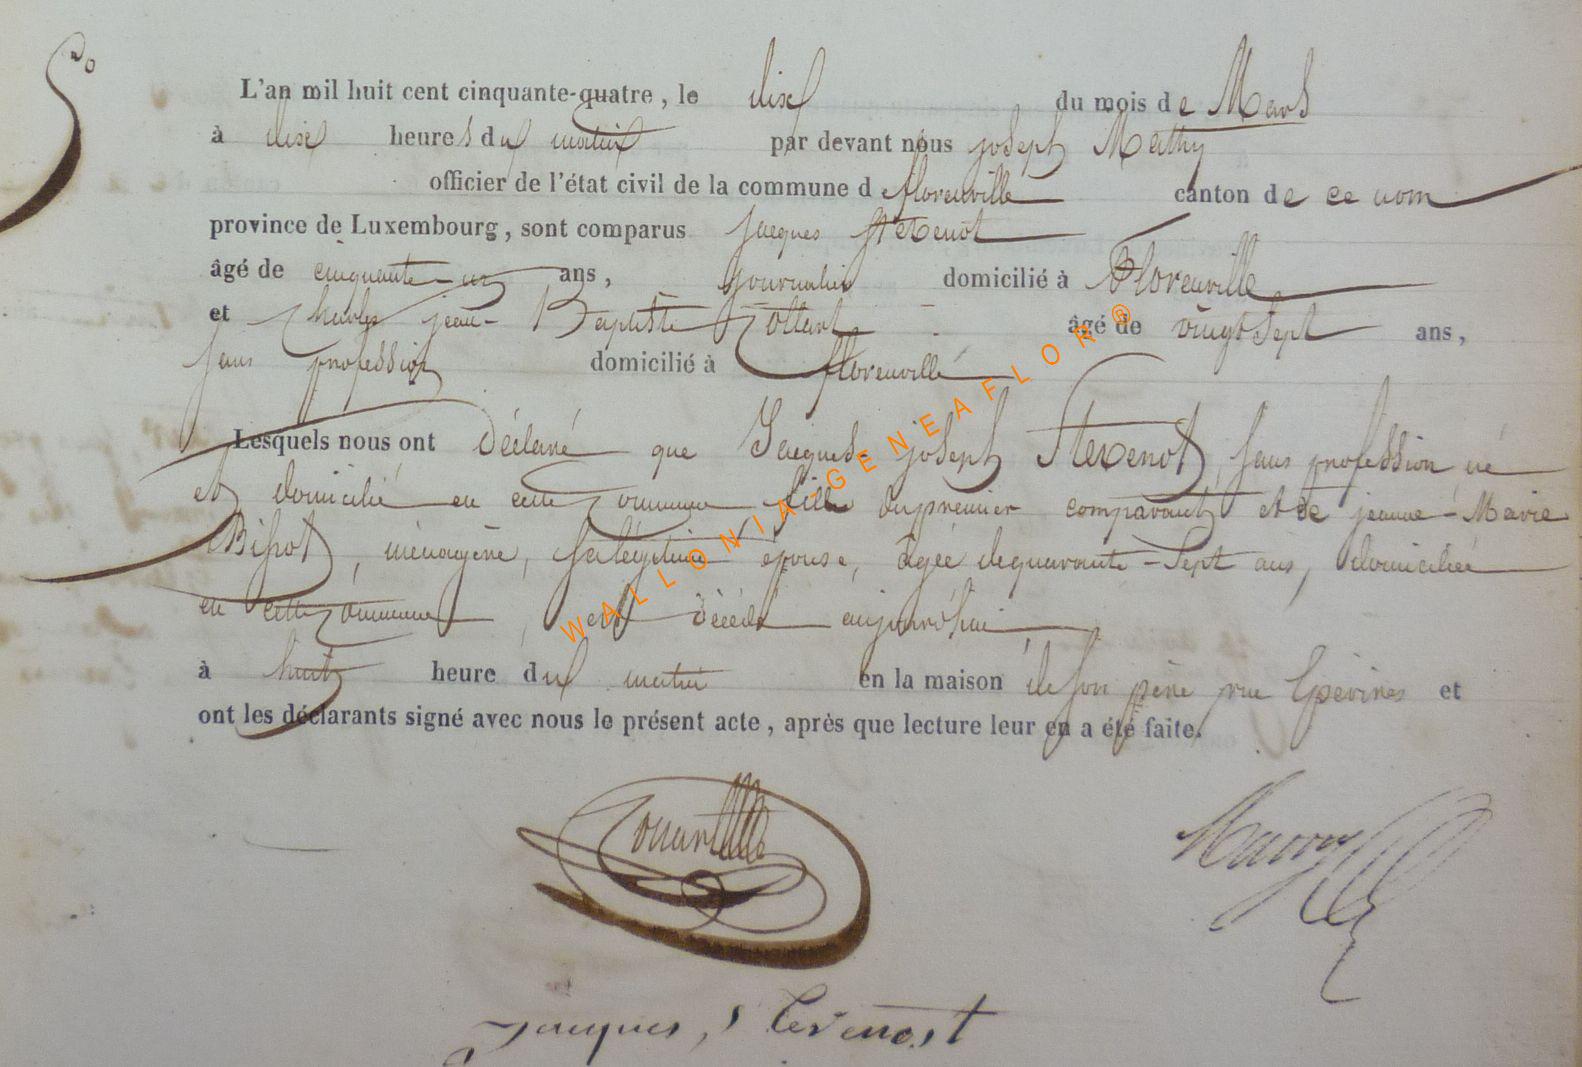 5o
L'an mil huit cent cinquante-quatre, le dix du mois de Mars
à dix heures du matin par devant nous joseph Mathy
officier de l'état civil de la commune de florenville canton de ce nom
province de Luxembourg, sont comparus jacques Stevenot
âgé de cinquante-un ans, journalier domicilié à Florenville
et Charles jean-Baptiste Collart âgé de vingt sept ans,
sans profession domicilié à florenville
Lesquels nous ont déclaré que Jacques-joseph Stevenot, sans profession né
et domicilié en cette commune fils du premier comparant et de jeanne-Marie
, ménagère, sa légitime épouse, âgée de quarante-sept ans, domiciliée
en cette commune, est décédé aujourd'hui
à huit heure du matin en la maison de son père rue Epévines et
ont les déclarants signé avec nous le présent acte, après que lecture leur en a été faite.
Jacques, Stevenost
WALLONIA-GENEAFLOR®